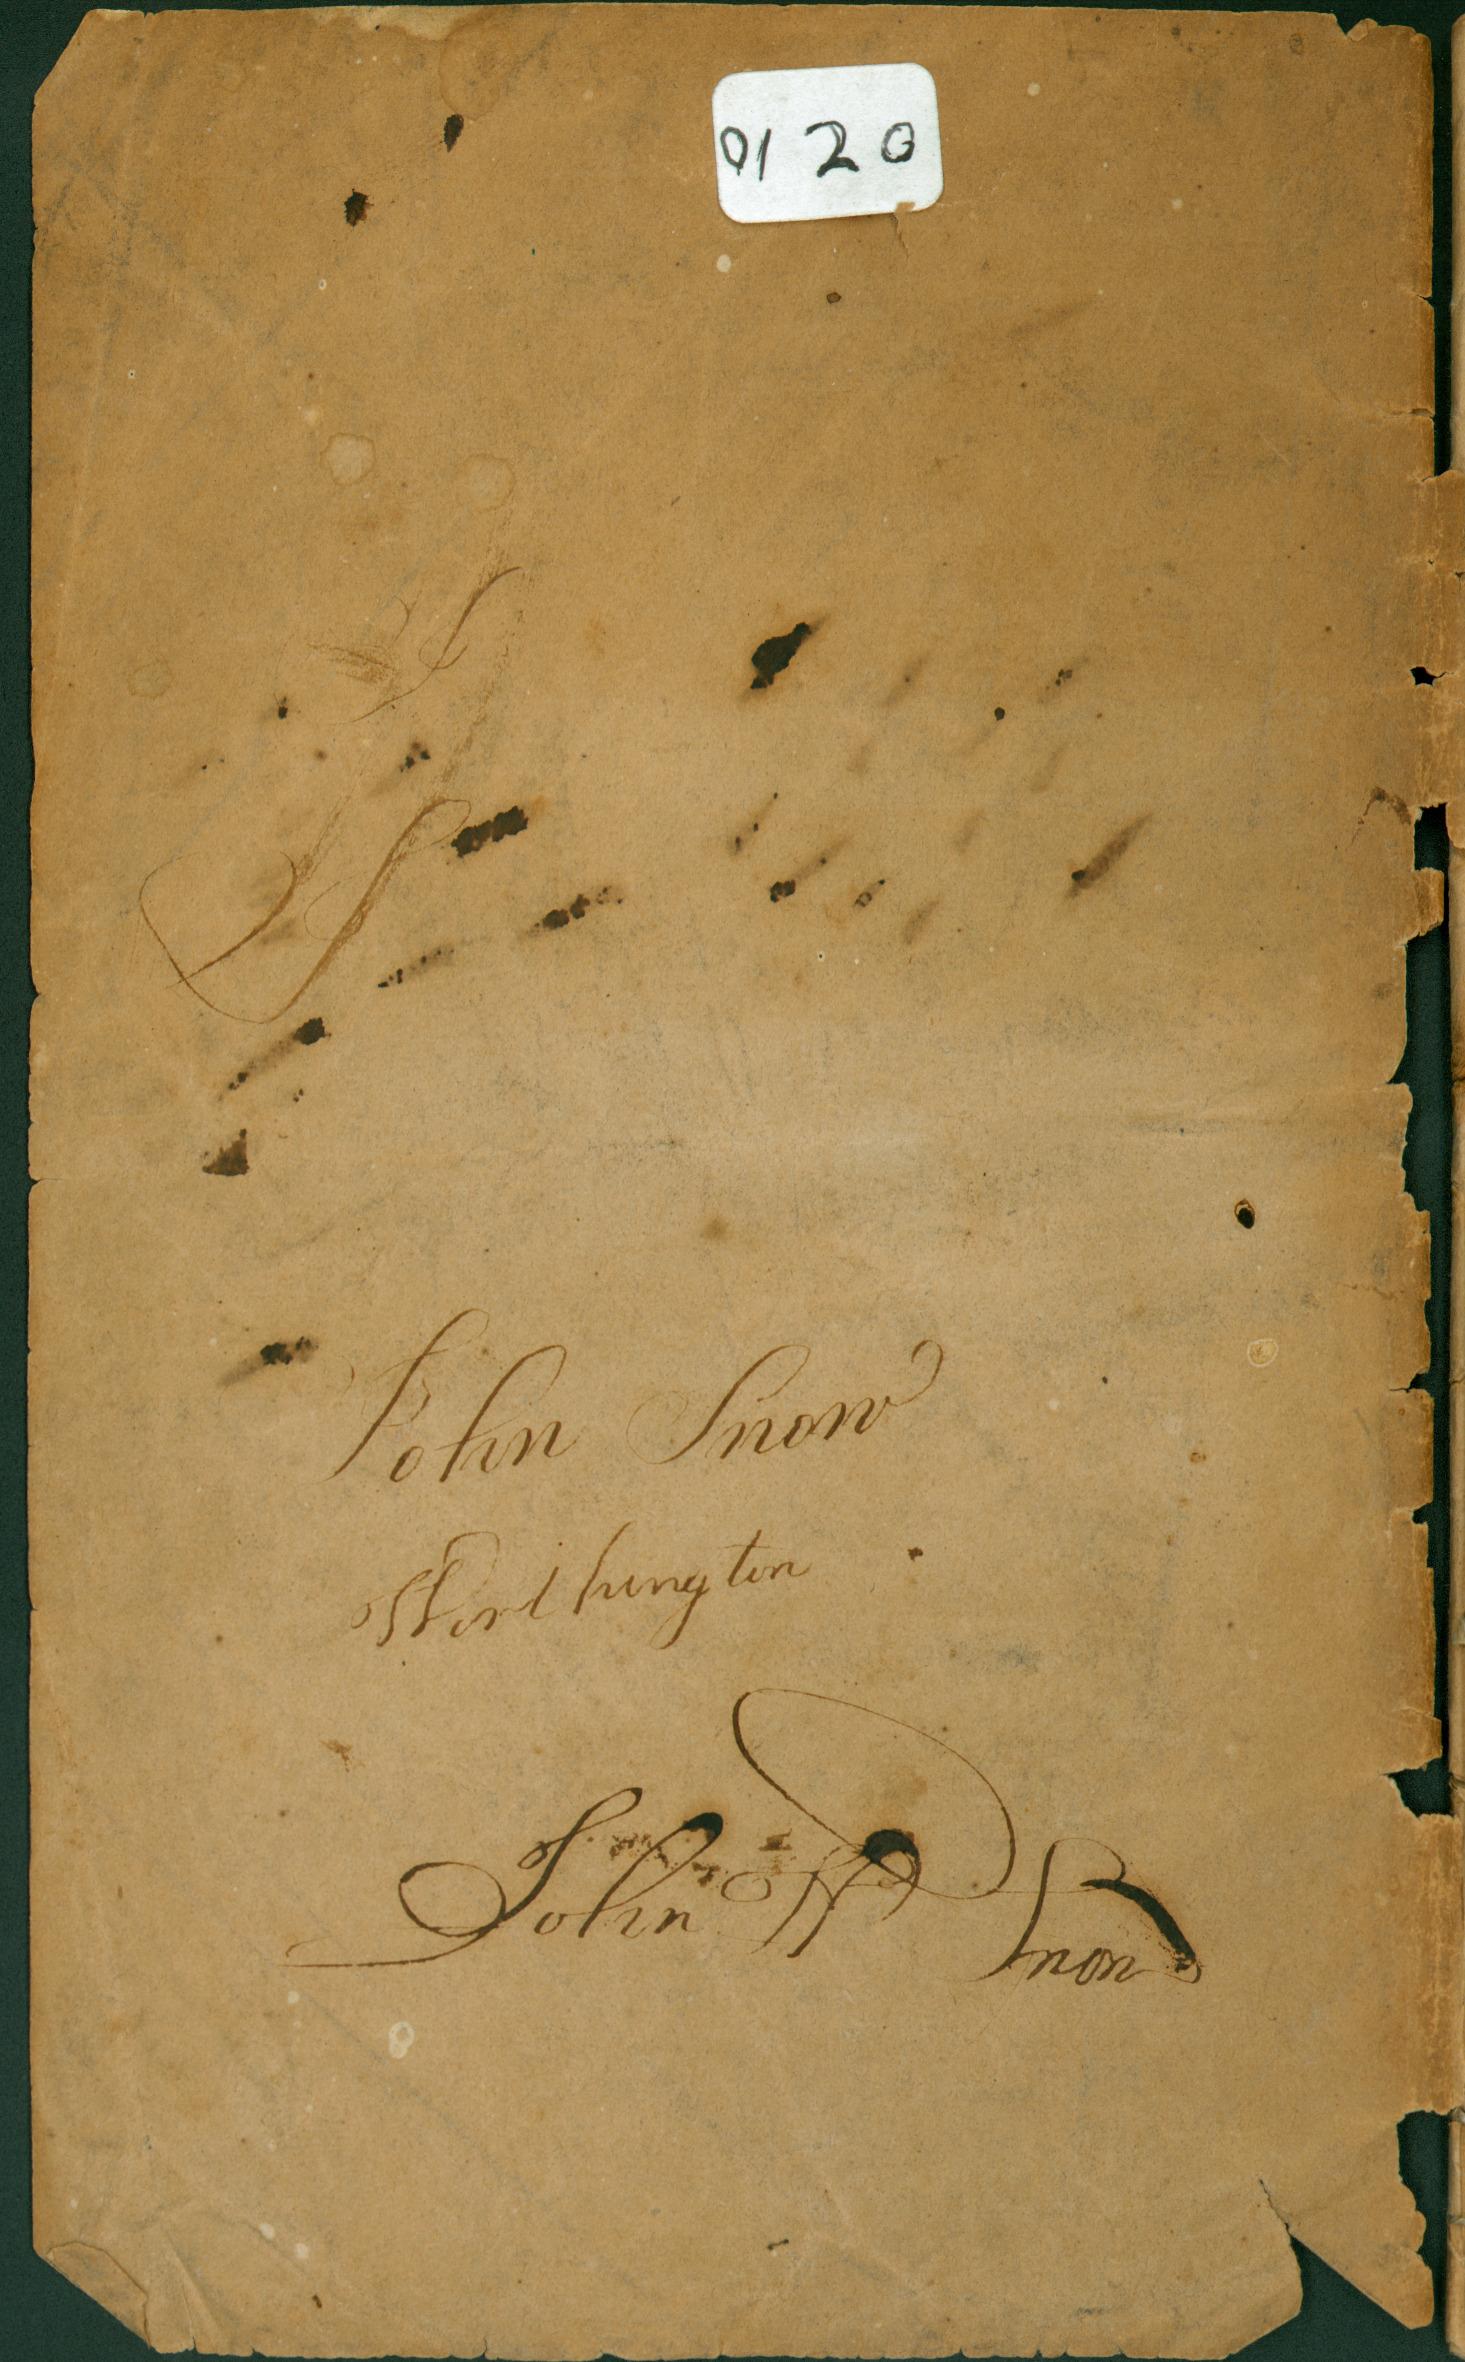 0120
John Snow
Worthington
John W Snow